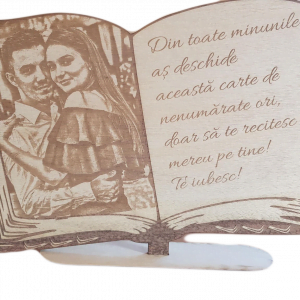 Din toate minunile
aș deschide
această carte de
nenumărate ori,
doar să te recitesc
mereu pe tine!
Te iubesc!